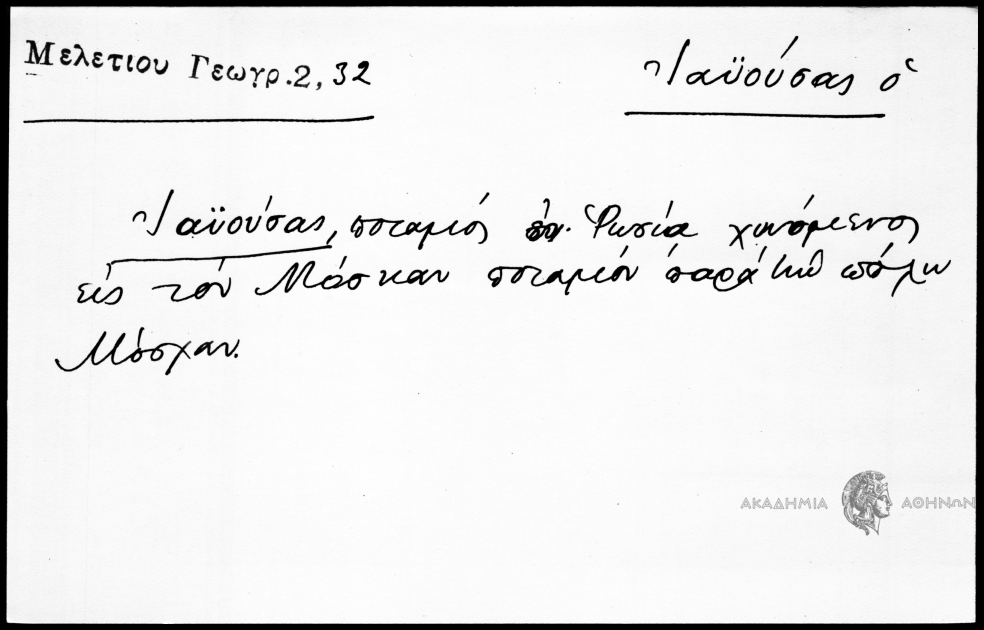 Μελετιου Γεωγρ. 2, 32
Ἰαϋούσας ὁ
Ἰαϋούσας, ποταμιός ἐν Ῥωσία χυνόμενος
εἰς τόν Μόσκαν ποταμιόν παρά τήν πόλιν
Μόσχαν.
ΑΚΑΔΗΜΙΑ ΑΘΗΝΩΝ